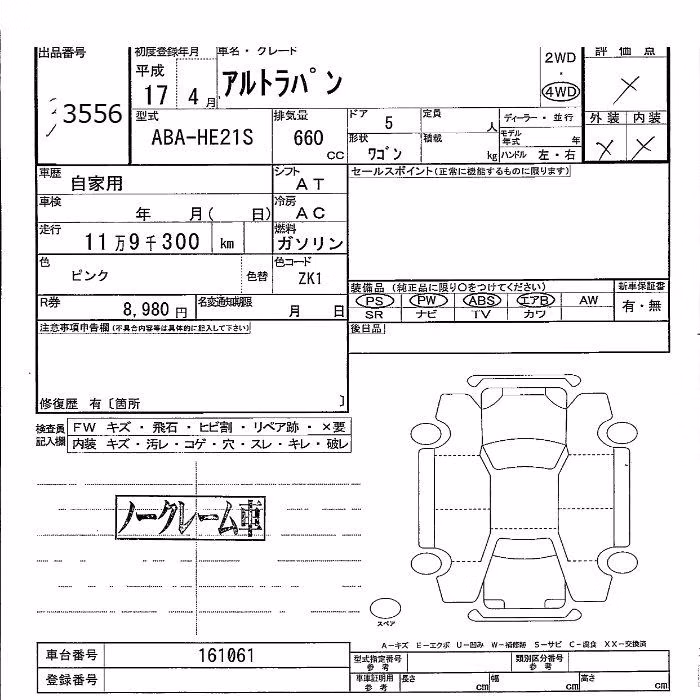 出品番号
3556
初度登録年月
平成
17 4 月
車名・グレード
アルトラパン
2WD
・
4WD
評価点
×
外装 内装
× ×
型式
ABA-HE21S
排気量
660
cc
ドア
5
定員
人
形状
ワゴン
積載
kg
ディーラー・並行
モデル年式
年
ハンドル 左・右
車歴
自家用
シフト
AT
車検
年 月( 日)
冷房
AC
走行
11万9千300 km
燃料
ガソリン
色
ピンク
色替
色コード
ZK1
R券
8,980 円
名変通知期限
月 日
セールスポイント(正常に機能するものに限ります)
装備品 (純正品に限り○をつけてください)
PS PW ABS エアB AW
SR ナビ TV カワ
新車保証書
有・無
後日品
注意事項申告欄(不具合内容等は具体的に記入して下さい)
修復歴 有〔箇所 〕
検査員
記入欄
FW キズ・飛石・ヒビ割・リペア跡・×要
内装 キズ・汚レ・コゲ・穴・スレ・キレ・破レ
ノークレーム車
スペア
A-キズ E-エクボ U-凹み W-補修跡 S-サビ C-腐食 XX-交換済
車台番号 161061
登録番号
型式指定番号
参考
類別区分番号
参考
車庫証明用
参考
長さ cm
幅 cm
高さ cm